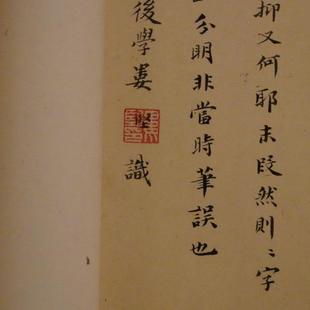 抑又何耶末段然則〻字
分明非當時筆誤也
後學婁堅識